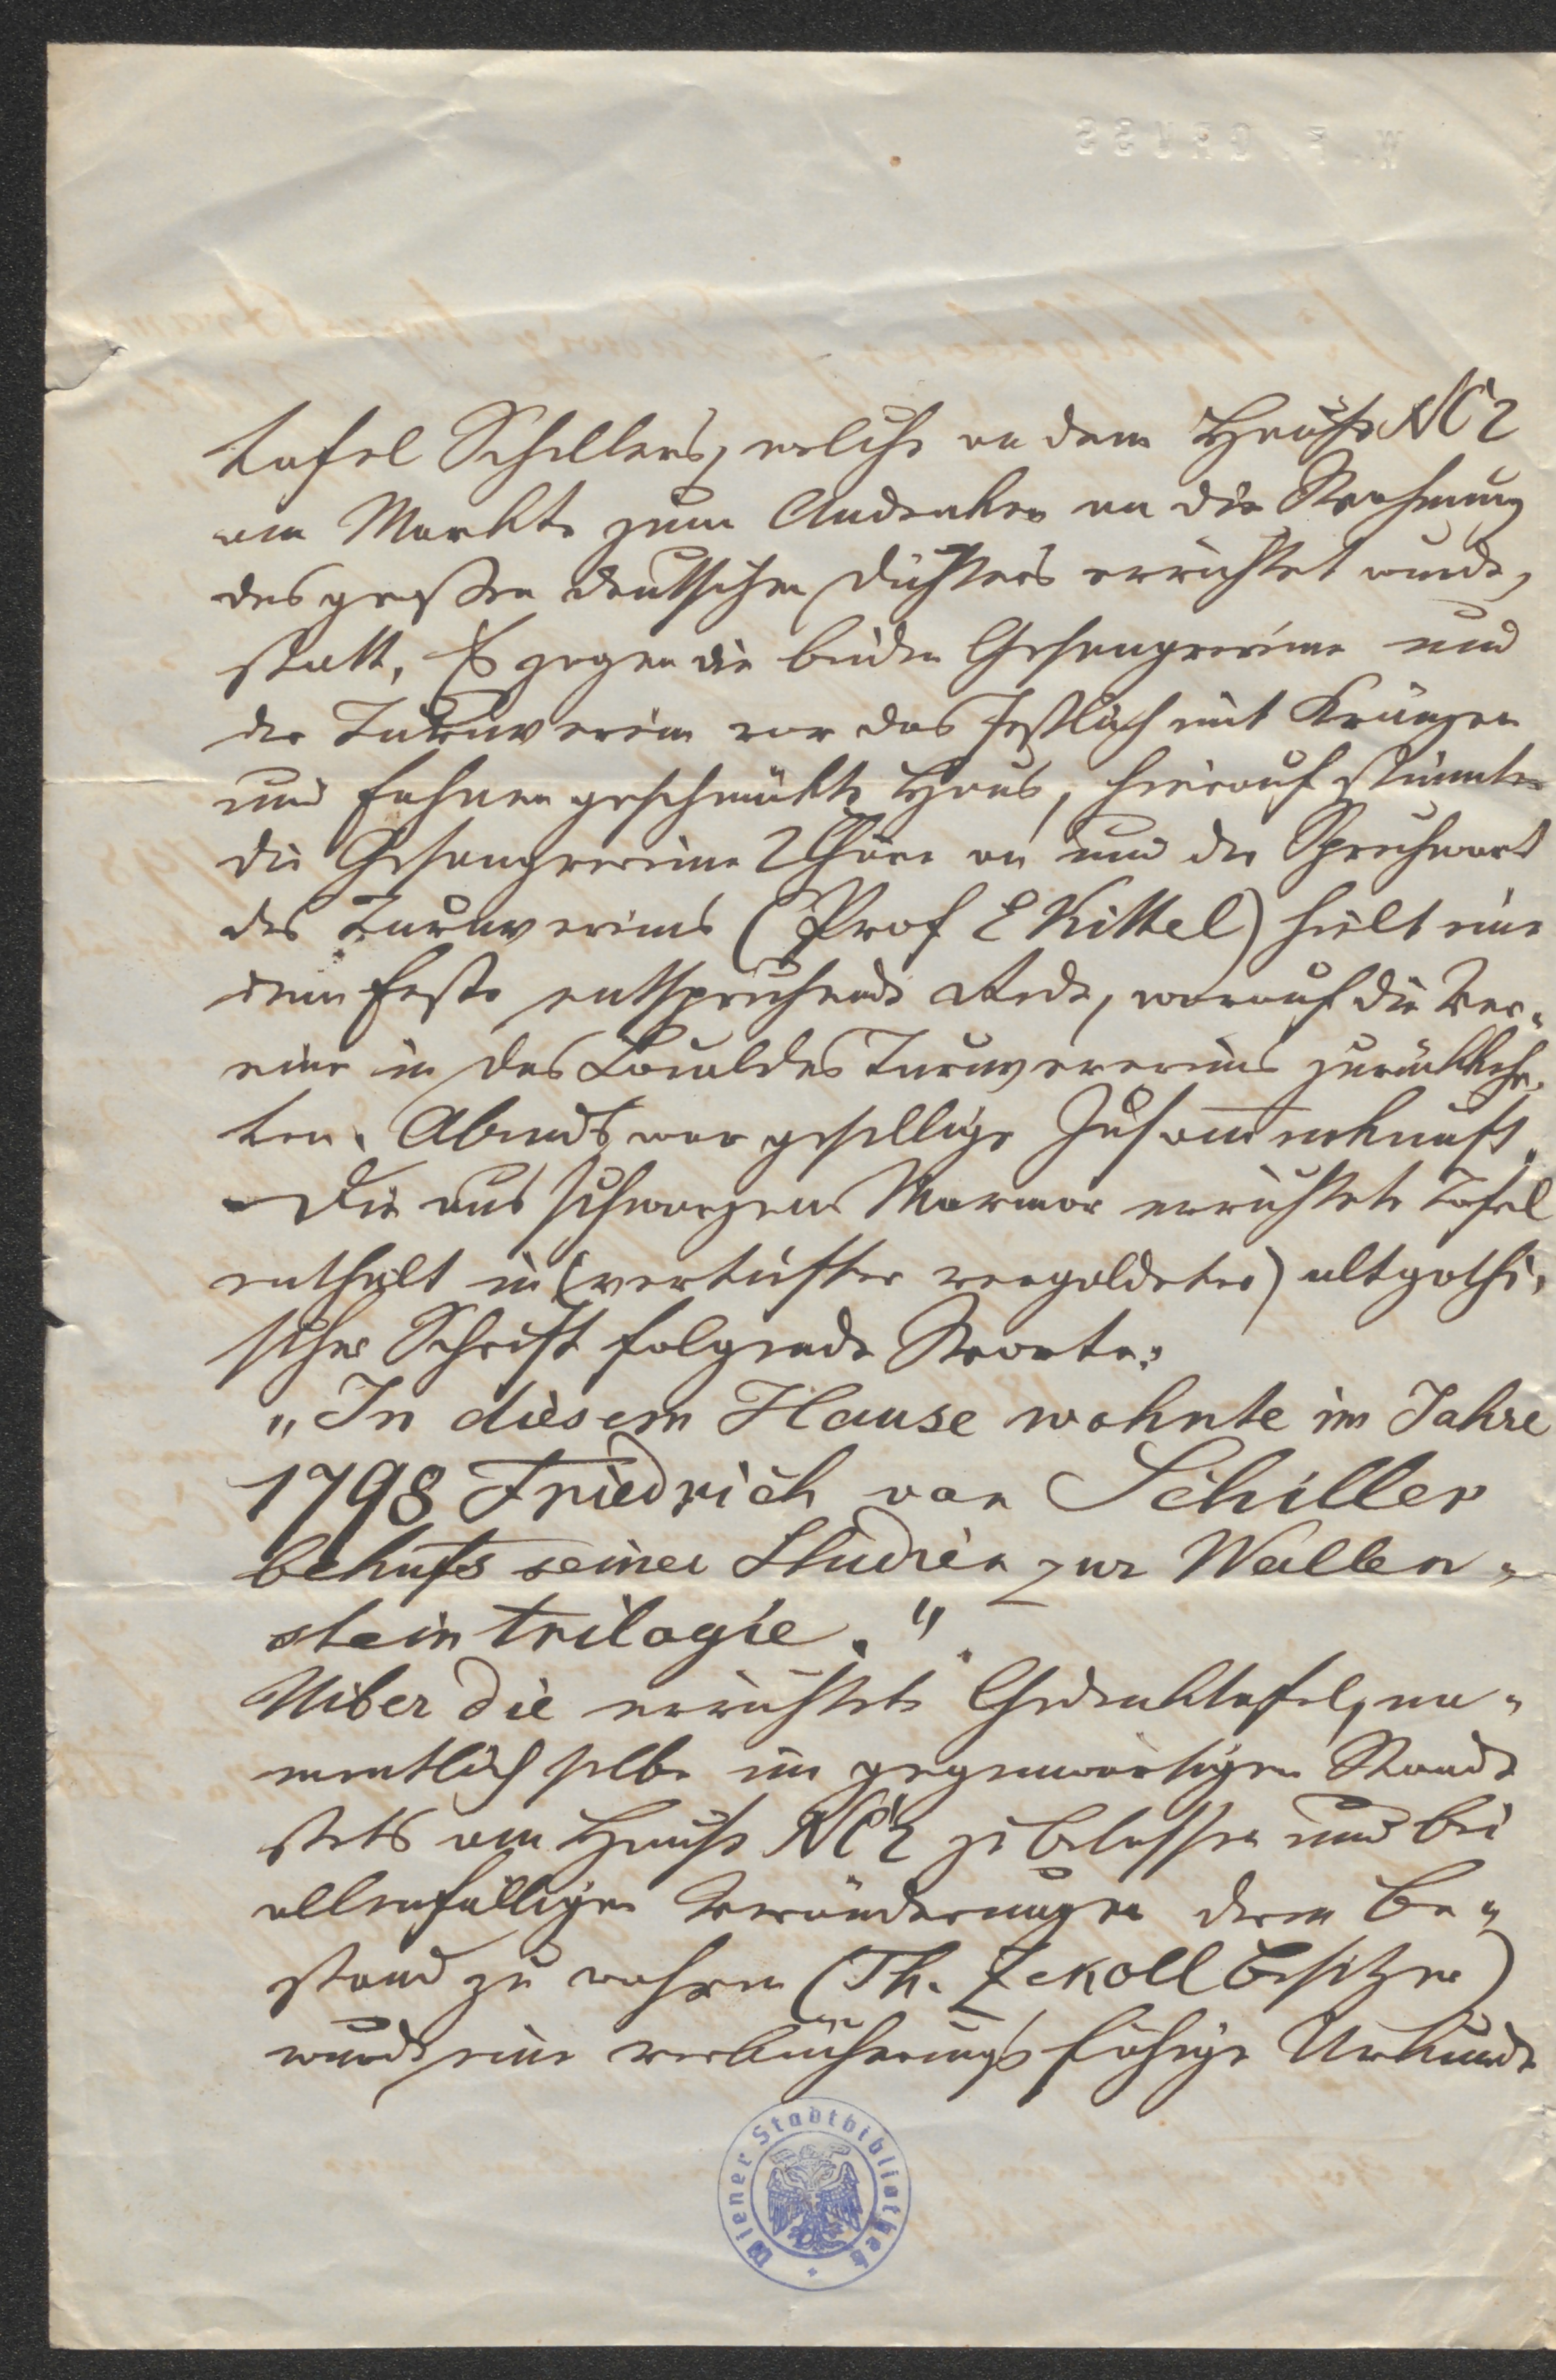 W. F. GRUSS
tafel Schillers, welche an dem Hause NC 2
am Markte zum Andenken an die Wohnung
des großen deutschen Dichters errichtet wurde,
statt. Es zogen die beiden Gesangvereine und
der Turnverein vor das festlich mit Kränzen
und Fahnen geschmückte Haus, hierauf stimmten
die Gesangvereine 2 Chöre an und der Sprechwart
des Turnvereins (Prof E Kittel) hielt eine
dem Feste entsprechende Rede, worauf die Ver-
eine in das Local des Turnvereins zurückkehr-
ten. Abends war gesellige Zusammenkunft.
Die aus schwarzem Marmor errichtete Tafel
enthält in (vertiefter vergoldeter) altgothi-
scher Schrift folgende Worte:
„In diesem Hause wohnte im Jahre
1798 Friedrich von Schiller
behufs seiner Studien zur Wallen-
steintrilogie."
Uiber die errichtete Gedenktafel, na-
mentlich selbe im gegenwärtigen Stande
stets am Hause NC 2 zu belassen und bei
allenfälligen Veränderungen deren Be-
stand zu wahren (Th. Zekoll Besitzer)
wurde eine verbücherungsfähige Urkunde
Wiener Stadtbibliothek